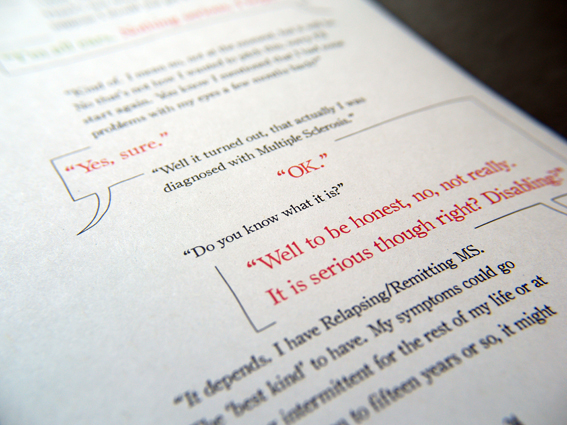 "Kind of. I mean no, not at the moment, but
No that's not how I wanted to
start again. You know I mentioned that I had some
problems with my eyes a few months back?"
"Yes, sure."
"Well it turned out, that actually I was
diagnosed with Multiple Sclerosis."
"OK."
"Do you know what it is?"
"Well to be honest, no, not really.
It is serious though right? Disabling?"
"It depends. I have Relapsing/Remitting MS.
The 'best kind' to have. My symptoms could go
intermittent for the rest of my life or at
to fifteen years or so, it might